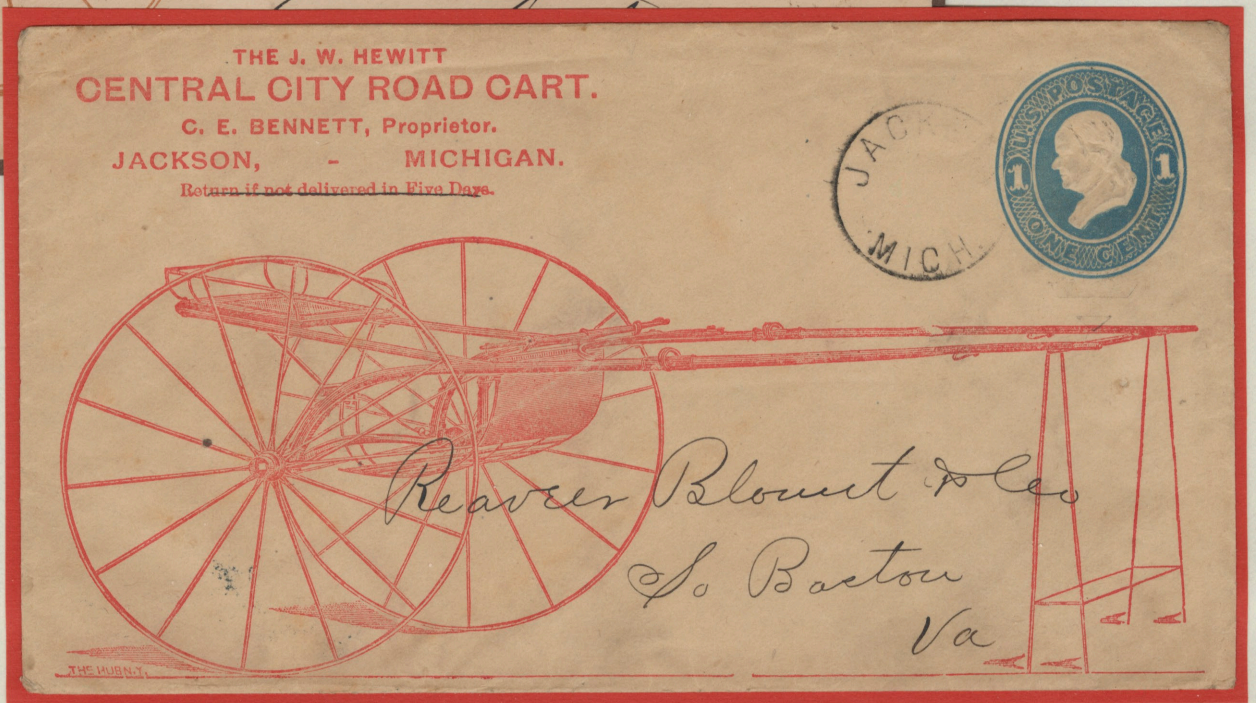 THE J. W. HEWITT
CENTRAL CITY ROAD CART.
C. E. BENNETT, Proprietor.
JACKSON, - MICHIGAN.
Return if not delivered in Five Days.
JACK
MICH.
U.S. POSTAGE
1 1
ONE CENT
Reaver Blount & Co
So Boston
Va
THE HUB N.Y.